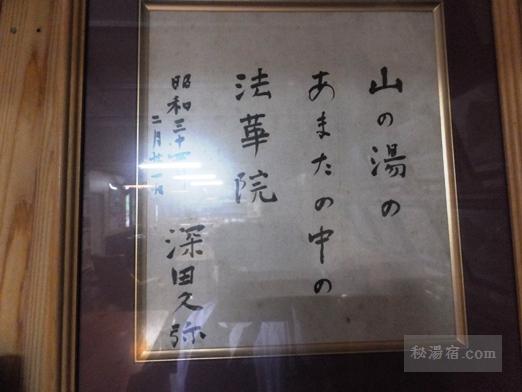 山の湯の
あまたの中の
法華院
昭和三十四
二月廿一日
深田久弥
秘湯宿.com